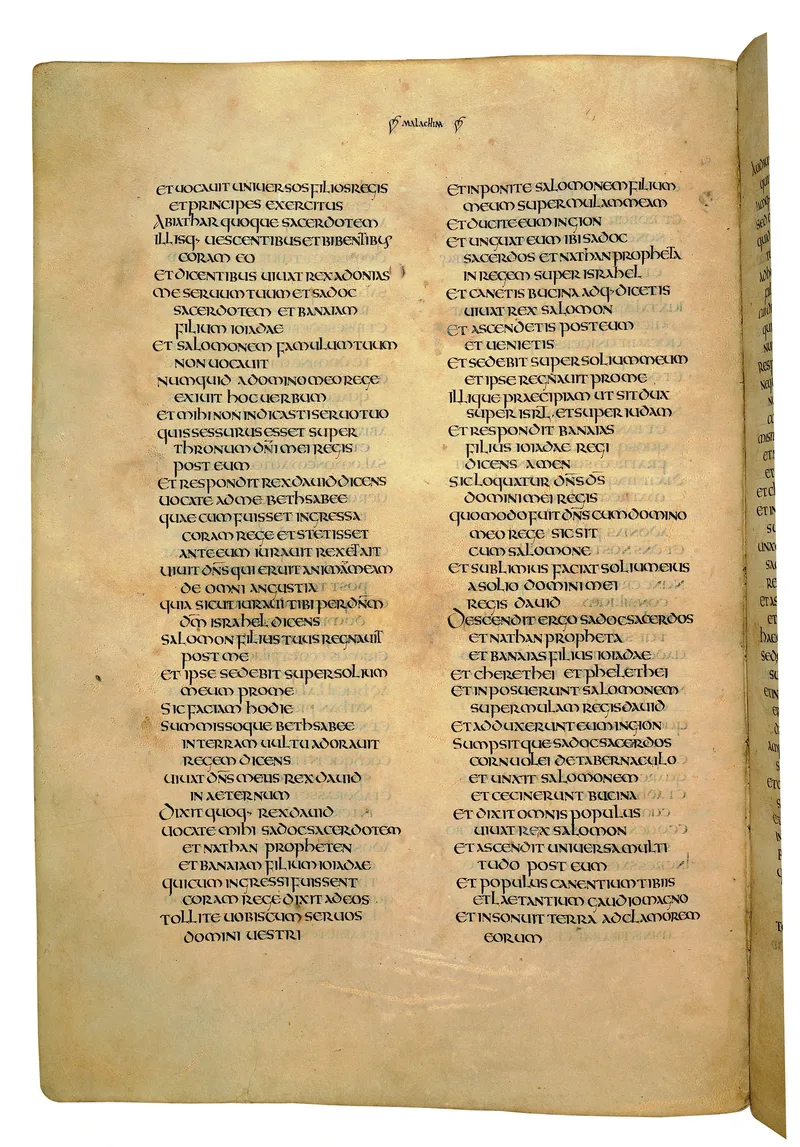 MALACHIM
ET UOCAUIT UNIUERSOS FILIOS REGIS
ET PRINCIPES EXERCITUS
ABIATHAR QUOQUE SACERDOTEM
ILLISQ· UESCENTIBUS ET BIBENTIBUS
CORAM EO
ET DICENTIBUS UIUAT REX ADONIAS
ME SERUUM TUUM ET SADOC
SACERDOTEM ET BANAIAM
FILIUM IOIADAE
ET SALOMONEM FAMULUM TUUM
NON UOCAUIT
NUMQUID A DOMINO MEO REGE
EXIUIT HOC UERBUM
ET MIHI NON INDICASTI SERUO TUO
QUIS SESSURUS ESSET SUPER
THRONUM DÑI MEI REGIS
POST EUM
ET RESPONDIT REX DAUID DICENS
UOCATE AD ME BETHSABEE
QUAE CUM FUISSET INGRESSA
CORAM REGE ET STETISSET
ANTE EUM IURAUIT REX ET AIT
UIUIT DÑS QUI ERUIT ANIMAM MEAM
DE OMNI ANGUSTIA
QUIA SICUT IURAUI TIBI PER DÑM
DM̄ ISRAHEL DICENS
SALOMON FILIUS TUUS REGNAUIT
POST ME
ET IPSE SEDEBIT SUPER SOLIUM
MEUM PRO ME
SIC FACIAM HODIE
SUMMISSOQUE BETHSABEE
IN TERRAM UULTU ADORAUIT
REGEM DICENS
UIUAT DÑS MEUS REX DAUID
IN AETERNUM
DIXIT QUOQ· REX DAUID
UOCATE MIHI SADOC SACERDOTEM
ET NATHAN PROPHETEN
ET BANAIAM FILIUM IOIADAE
QUI CUM INGRESSI FUISSENT
CORAM REGE DIXIT AD EOS
TOLLITE UOBISCUM SERUOS
DOMINI UESTRI
ET INPONITE SALOMONEM FILIUM
MEUM SUPER MULAM MEAM
ET DUCITE EUM IN GION
ET UNGUAT EUM IBI SADOC
SACERDOS ET NATHAN PROPHETA
IN REGEM SUPER ISRAHEL
ET CANETIS BUCINA ADQ· DICETIS
UIUAT REX SALOMON
ET ASCENDETIS POST EUM
ET UENIETIS
ET SEDEBIT SUPER SOLIUM MEUM
ET IPSE REGNAUIT PRO ME
ILLIQUE PRAECIPIAM UT SIT DUX
SUPER ISRL̄ ET SUPER IUDAM
ET RESPONDIT BANAIAS
FILIUS IOIADAE REGI
DICENS AMEN
SIC LOQUATUR DÑS D̄S
DOMINI MEI REGIS
QUOMODO FUIT DÑS CUM DOMINO
MEO REGE SIC SIT
CUM SALOMONE
ET SUBLIMIUS FACIAT SOLIUM EIUS
A SOLIO DOMINI MEI
REGIS DAUID
DESCENDIT ERGO SADOC SACERDOS
ET NATHAN PROPHETA
ET BANAIAS FILIUS IOIADAE
ET CHERETHEI ET PHELETHEI
ET INPOSUERUNT SALOMONEM
SUPER MULAM REGIS DAUID
ET ADDUXERUNT EUM IN GION
SUMPSITQUE SADOC SACERDOS
CORNU OLEI DE TABERNACULO
ET UNXIT SALOMONEM
ET CECINERUNT BUCINA
ET DIXIT OMNIS POPULUS
UIUAT REX SALOMON
ET ASCENDIT UNIUERSA MULTI
TUDO POST EUM
ET POPULUS CANENTIUM TIBIIS
ET LAETANTIUM GAUDIO MAGNO
ET INSONUIT TERRA AD CLAMOREM
EORUM